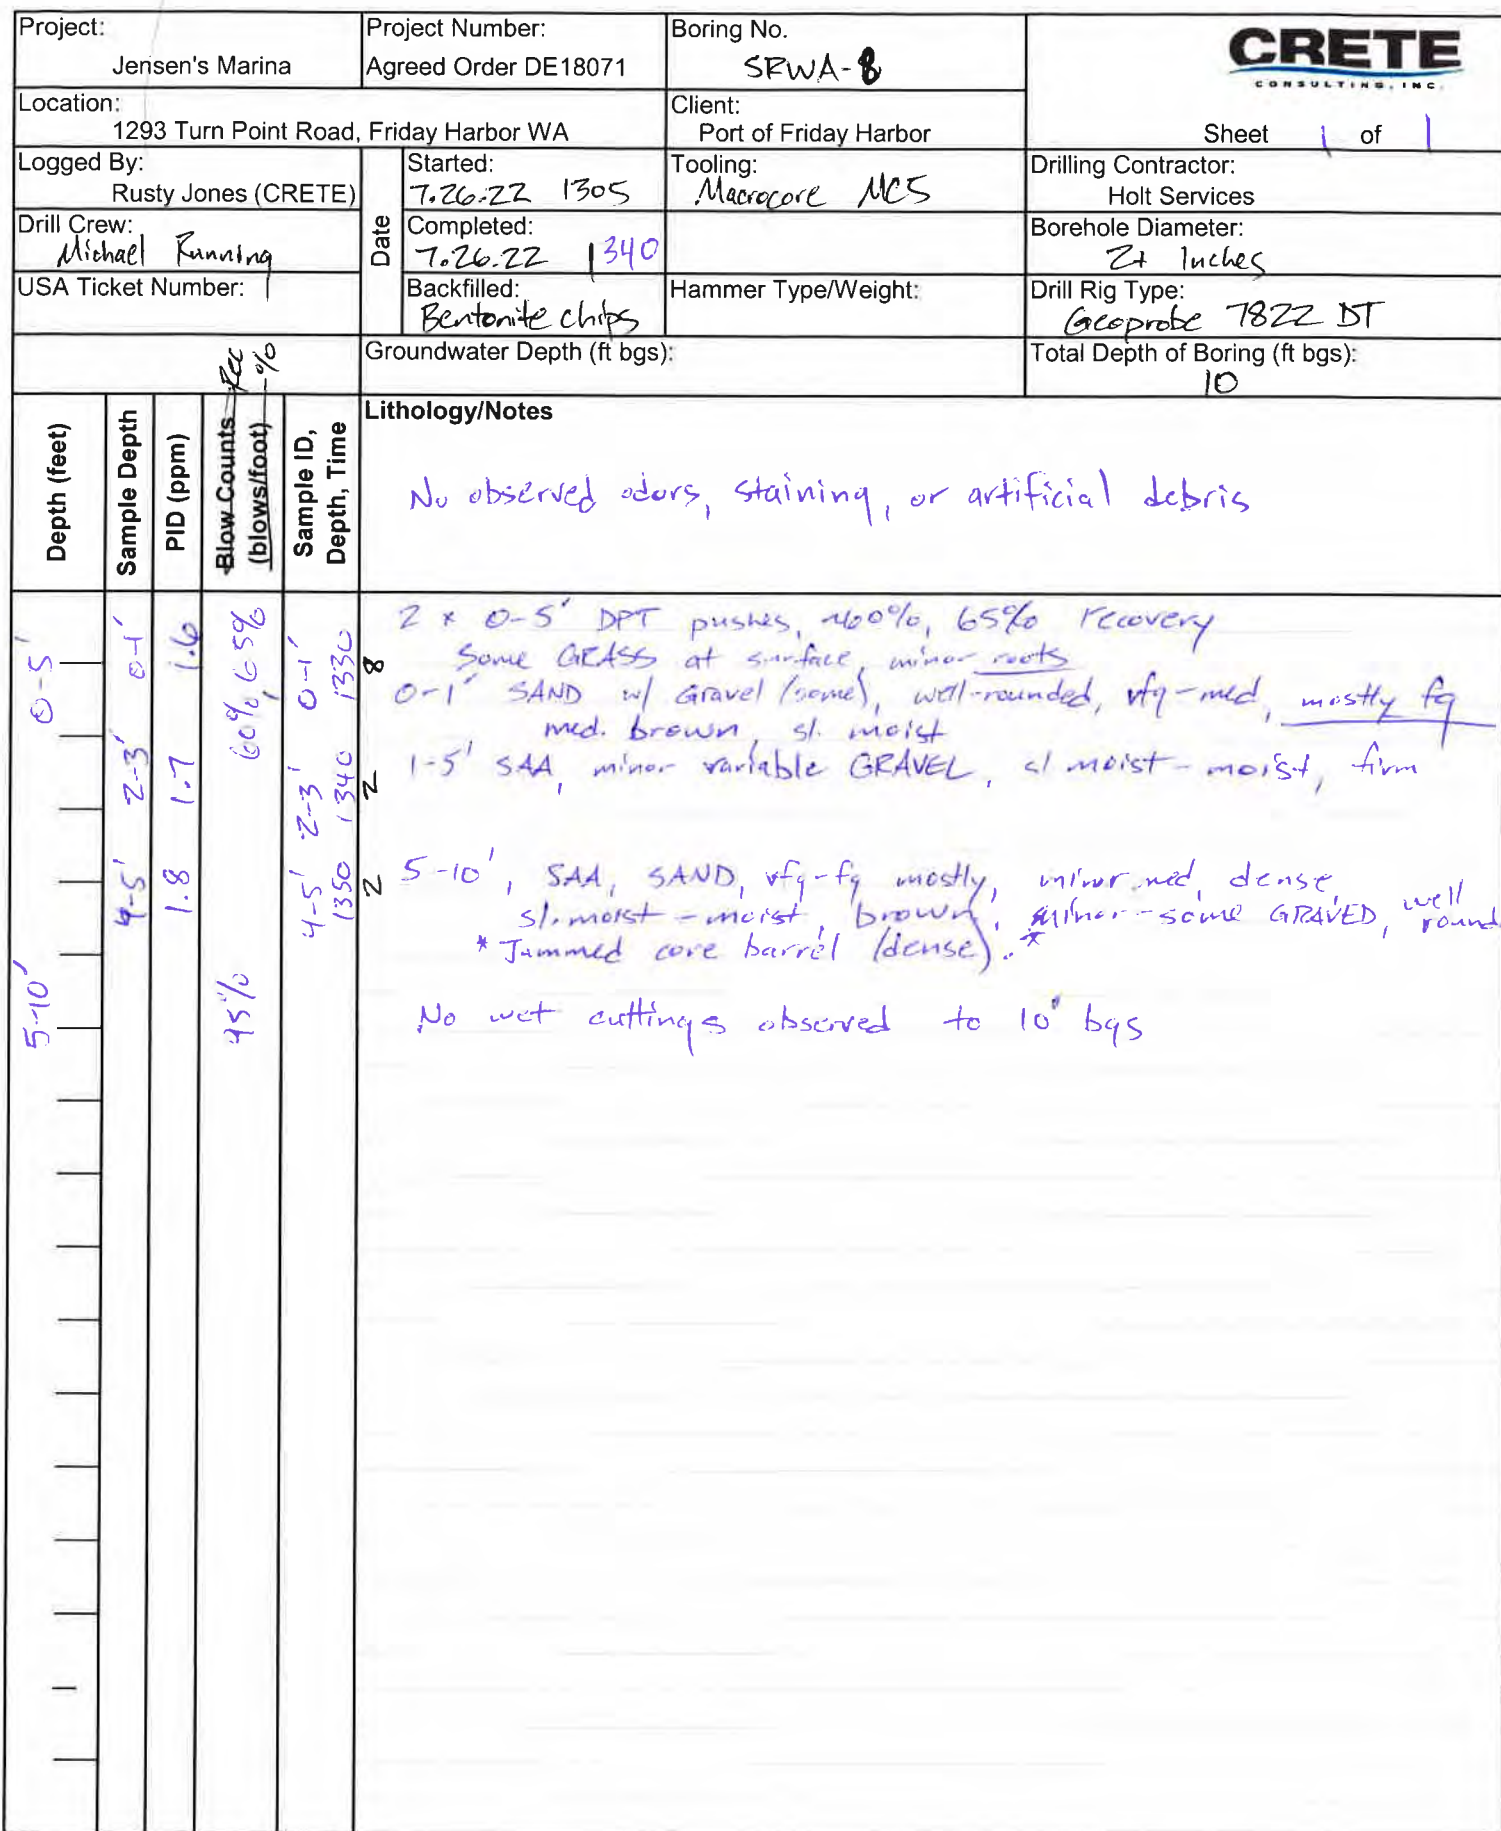 Project:
Jensen's Marina
Project Number:
Agreed Order DE18071
Boring No.
SRWA-8
CRETE
CONSULTING, INC.
Location:
1293 Turn Point Road, Friday Harbor WA
Client:
Port of Friday Harbor
Sheet 1 of 1
Logged By:
Rusty Jones (CRETE)
Date
Started:
7.26.22 1305
Tooling:
Macrocore MC5
Drilling Contractor:
Holt Services
Drill Crew:
Michael Running
Completed:
7.26.22 1340
Borehole Diameter:
2+ Inches
USA Ticket Number:
Backfilled:
Bentonite chips
Hammer Type/Weight:
Drill Rig Type:
Geoprobe 7822 DT
Groundwater Depth (ft bgs):
Total Depth of Boring (ft bgs):
10
Depth (feet)
Sample Depth
PID (ppm)
Blow Counts
(blows/foot)
Rec
%
Sample ID,
Depth, Time
Lithology/Notes
No observed odors, staining, or artificial debris
0-5'
0-1'
1.6
60%, 65%
0-1'
1330
8
2 x 0-5' DPT pushes, ~60%, 65% recovery
Some GRASS at surface, minor roots
0-1' SAND w/ Gravel (some), well-rounded, vfg-med, mostly fg
med. brown, sl. moist
2-3'
1.7
2-3'
1340
2
1-5' SAA, minor variable GRAVEL, sl moist - moist, firm
4-5'
1.8
4-5'
1350
2
5-10', SAA, SAND, vfg-fg mostly, minor med, dense,
sl. moist - moist, brown, minor-some GRAVED, well round.
* Jammed core barrel (dense). *
5-10'
95%
No wet cuttings observed to 10' bgs